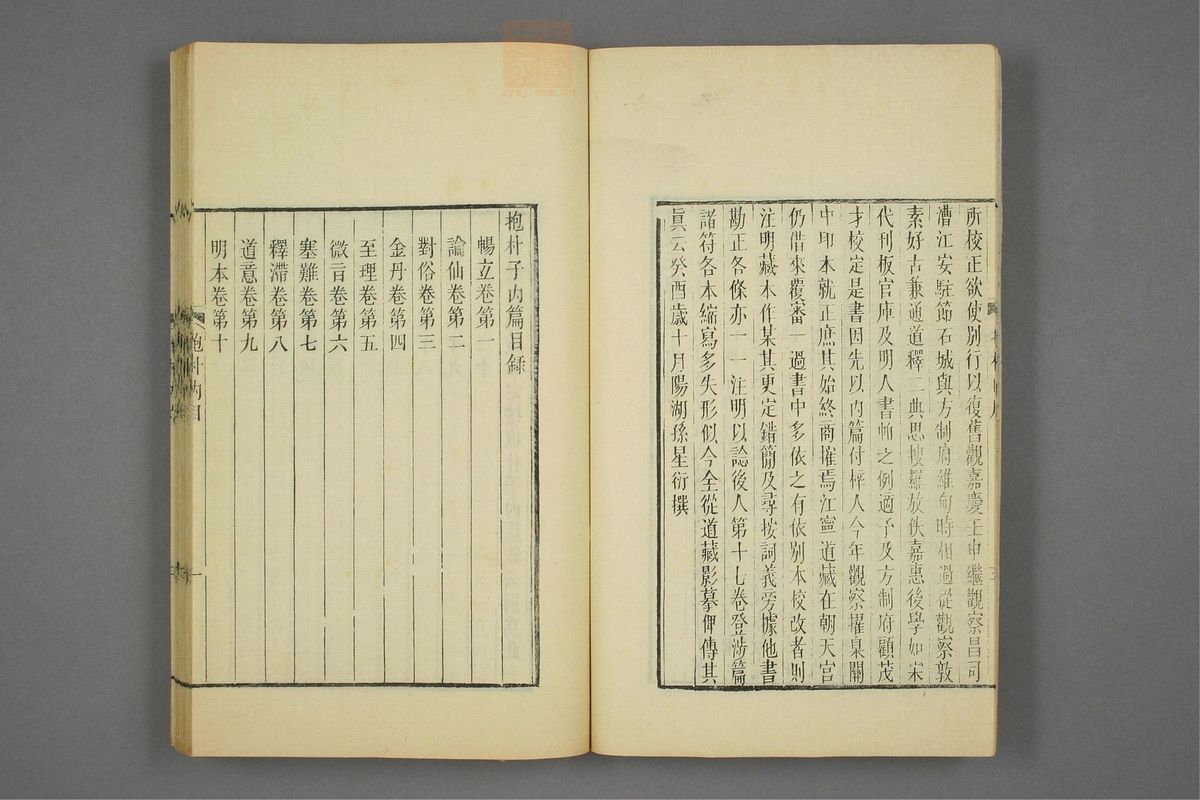 所校正欲使別行以復舊觀嘉慶壬申繼觀察昌司
漕江安駐節石城與方制府維甸時相過從觀察敦
素好古兼通道釋二典思摉羅放佚嘉惠後學如宋
代刊板官庫及明人書帕之例適予及方制府顧茂
才校定是書因先以內篇付梓人今年觀察擢臬關
中印本就正庶其始終商搉焉江寧道藏在朝天宮
仍借來覆審一過書中多依之有依別本校改者則
注明藏本作某其更定錯簡及尋按詞義旁據他書
勘正各條亦一一注明以諗後人第十七卷登涉篇
諸符各本縮寫多失形似今全從道藏影摹俾傳其
眞云癸酉歲十月陽湖孫星衍撰
抱朴子內篇目録
暢立卷第一
論仙卷第二
對俗卷第三
金丹卷第四
至理卷第五
微旨卷第六
塞難卷第七
釋滯卷第八
道意卷第九
明本卷第十
抱朴內目
一